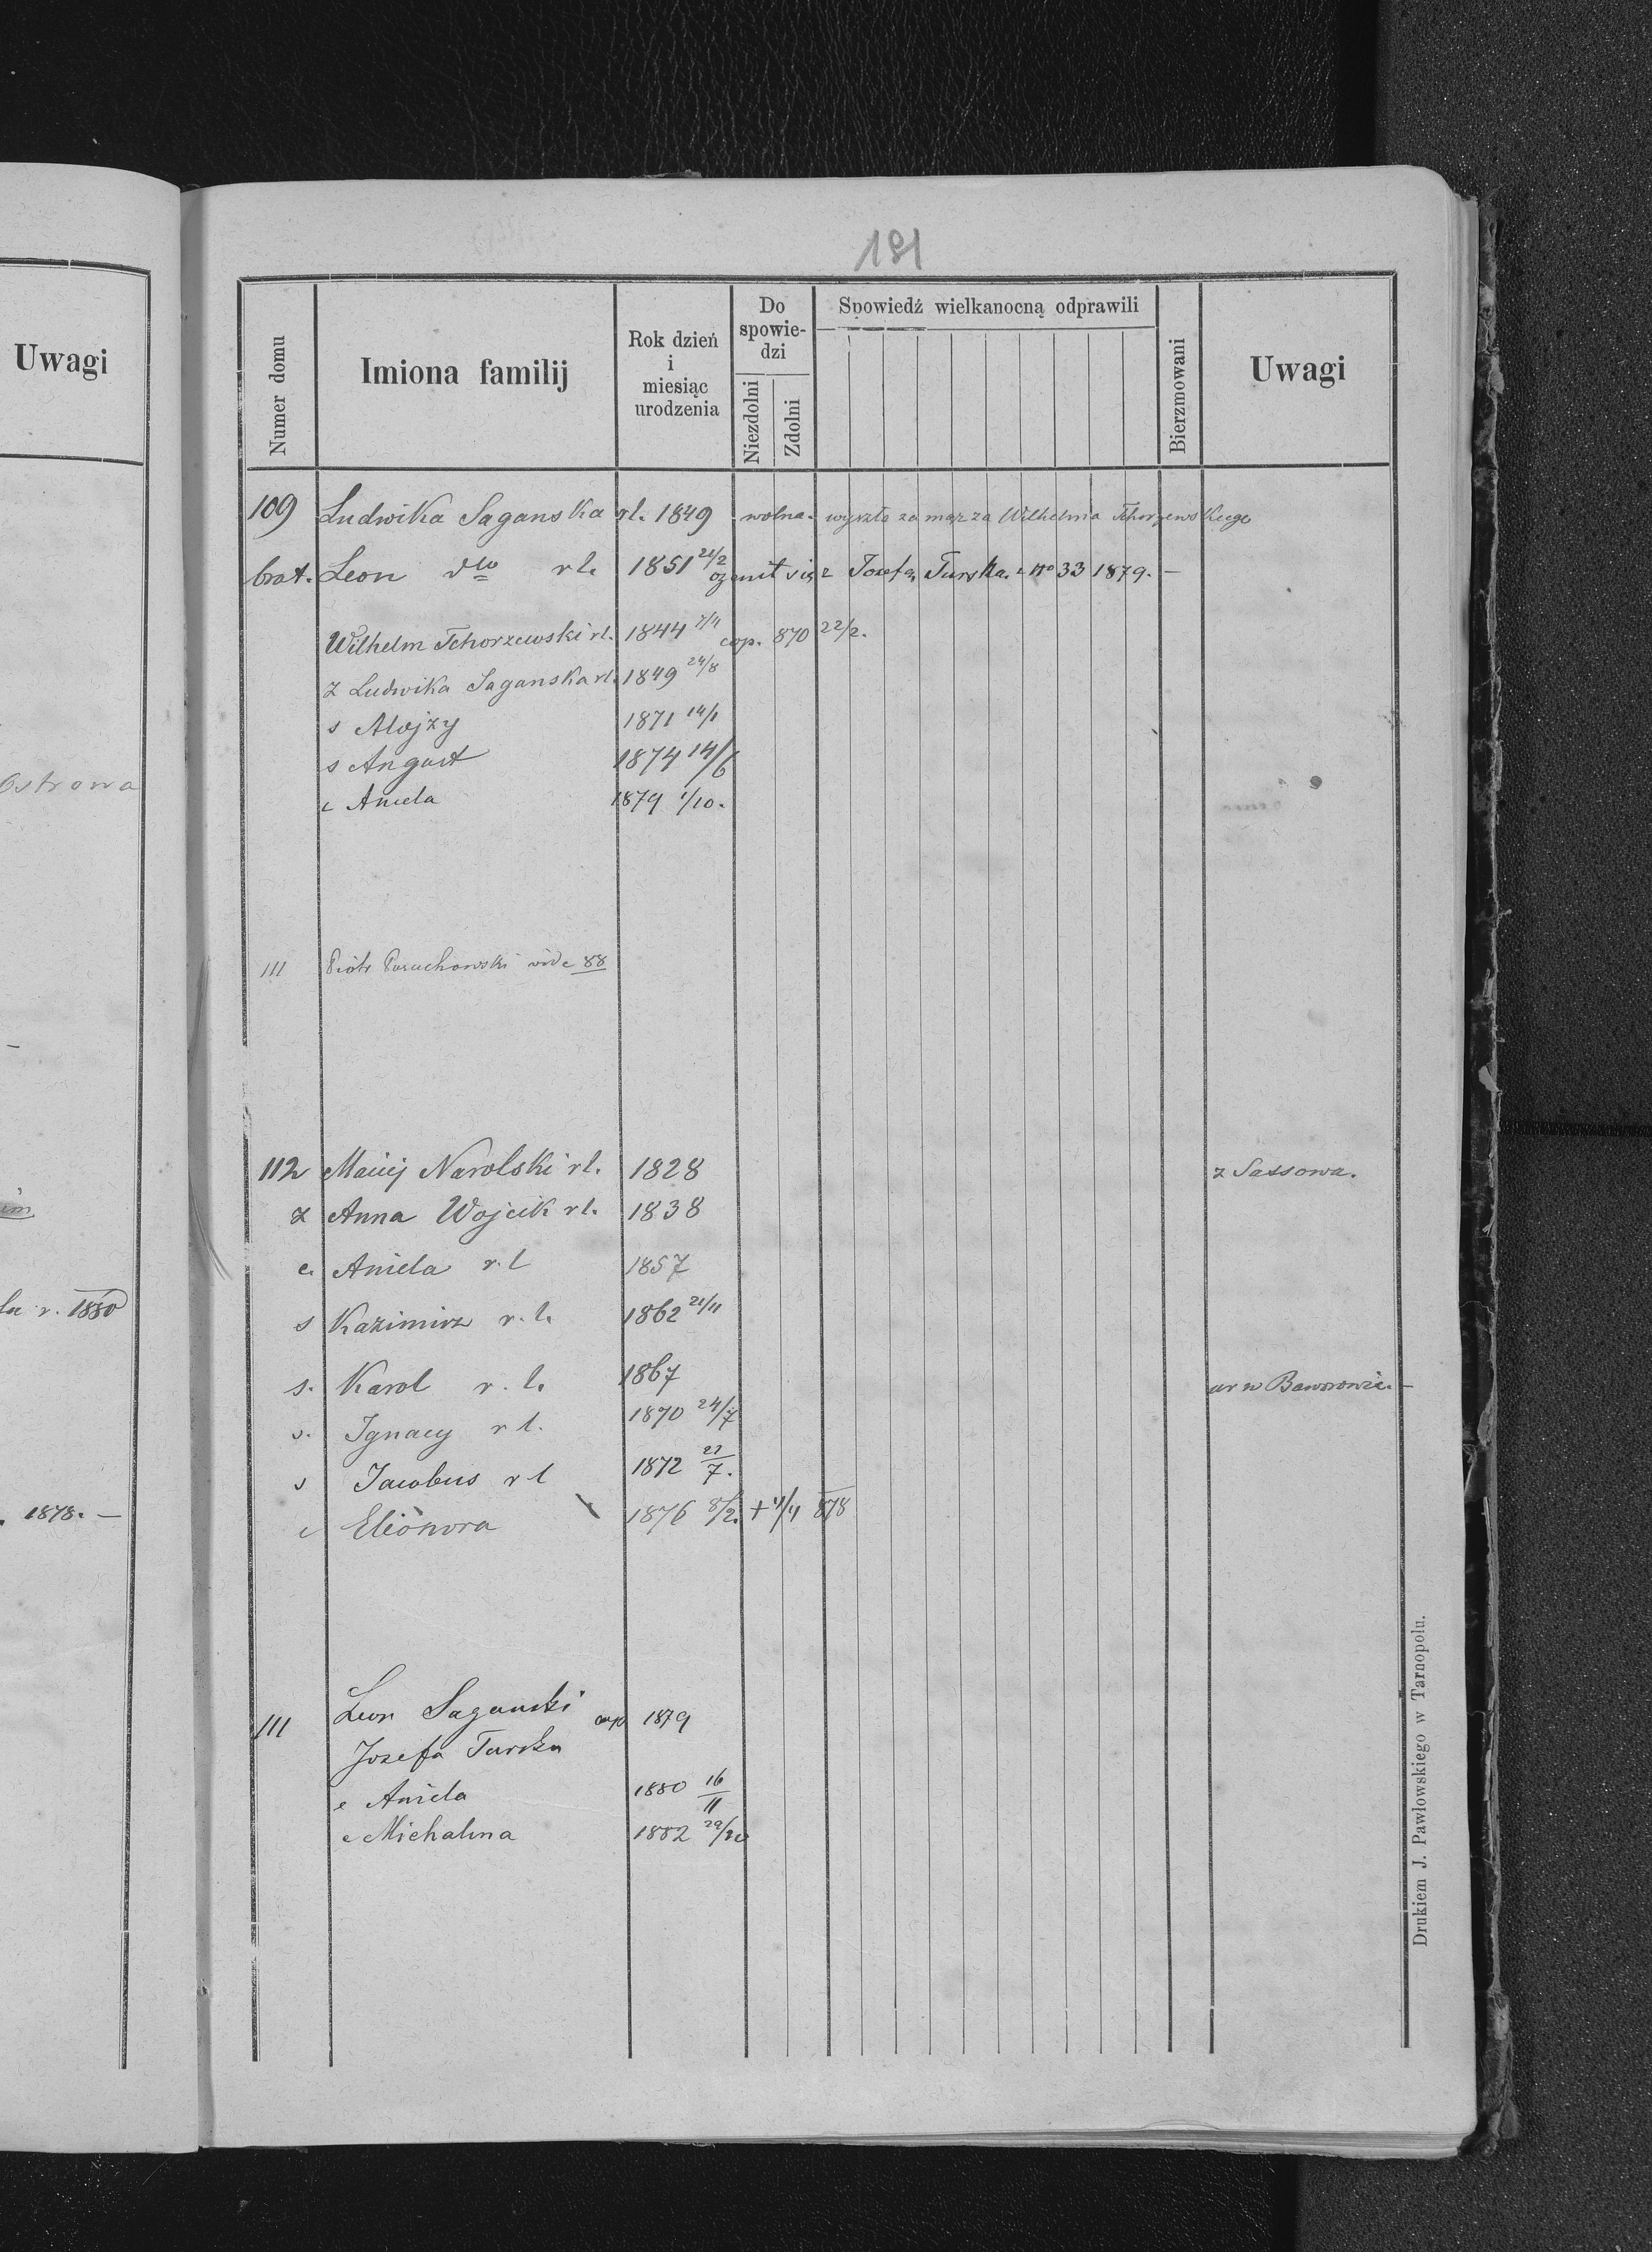 Uwagi
Ostrowa
r. 1880
1878. —
191
Numer domu
Imiona familij
Rok dzień
i
miesiąc
urodzenia
Do
spowie-
dzi
Niezdolni
Zdolni
Spowiedź wielkanocną odprawili
Bierzmowani
Uwagi
109 Ludwika Saganska rl. 1849 wolna. wyszła za mąż za Wilhelma Tchorzewskiego
brat. Leon dto rl. 1851 21/2 ożenił się z Józefą Turska z No 33 1879. —
Wilhelm Tchorzewski rl. 1844 7/4 cop. 870 22/2.
ż Ludwika Saganska rl. 1849 24/8
s Alojzy 1871 14/1
s August 1874 14/6
c Aniela 1879 1/10.
111 Piotr vide 88
112 Maciej Narolski rl. 1828 z Sassowa.
ż Anna Wojcik rl. 1838
c. Aniela r.l 1857
s Kazimirz r.l. 1862 21/11
s. Karol r.l. 1867 ur w Baworowie. —
s. Ignacy rl. 1870 24/7
s Jacobus rl 1872 21/7.
c Eleonora 1876 8/2. + 4/4 878
111 Leon Saganski cop 1879
Jozefa Turska
c Aniela 1880 16/11
c Michalina 1882 29/10
Drukiem J. Pawłowskiego w Tarnopolu.